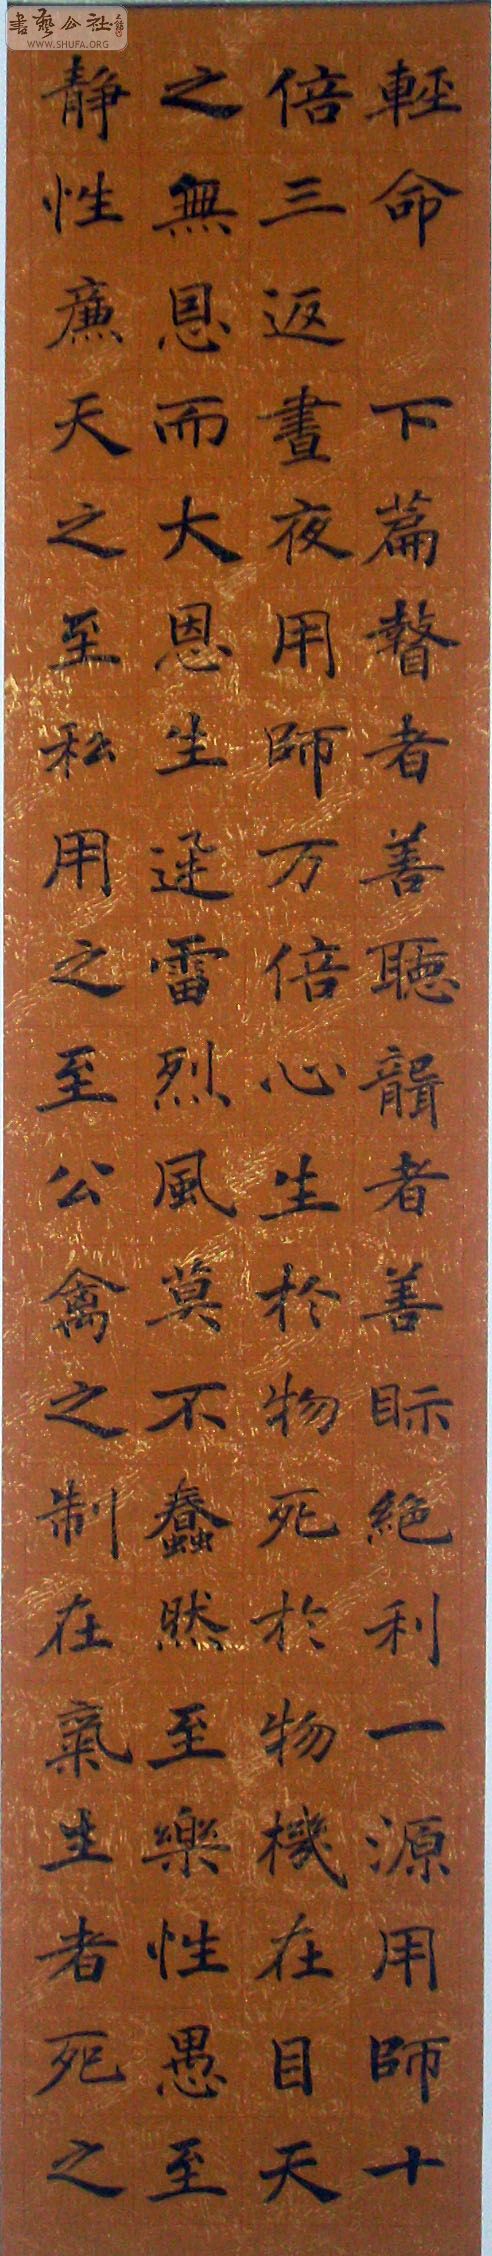 書藝公社
WWW.SHUFA.ORG
輕命 下篇瞽者善聽聾者善眎絕利一源用師十
倍三返晝夜用師万倍心生於物死於物機在目天
之無恩而大恩生迅雷烈風莫不蠢然至樂性愚至
靜性廉天之至私用之至公禽之制在氣生者死之